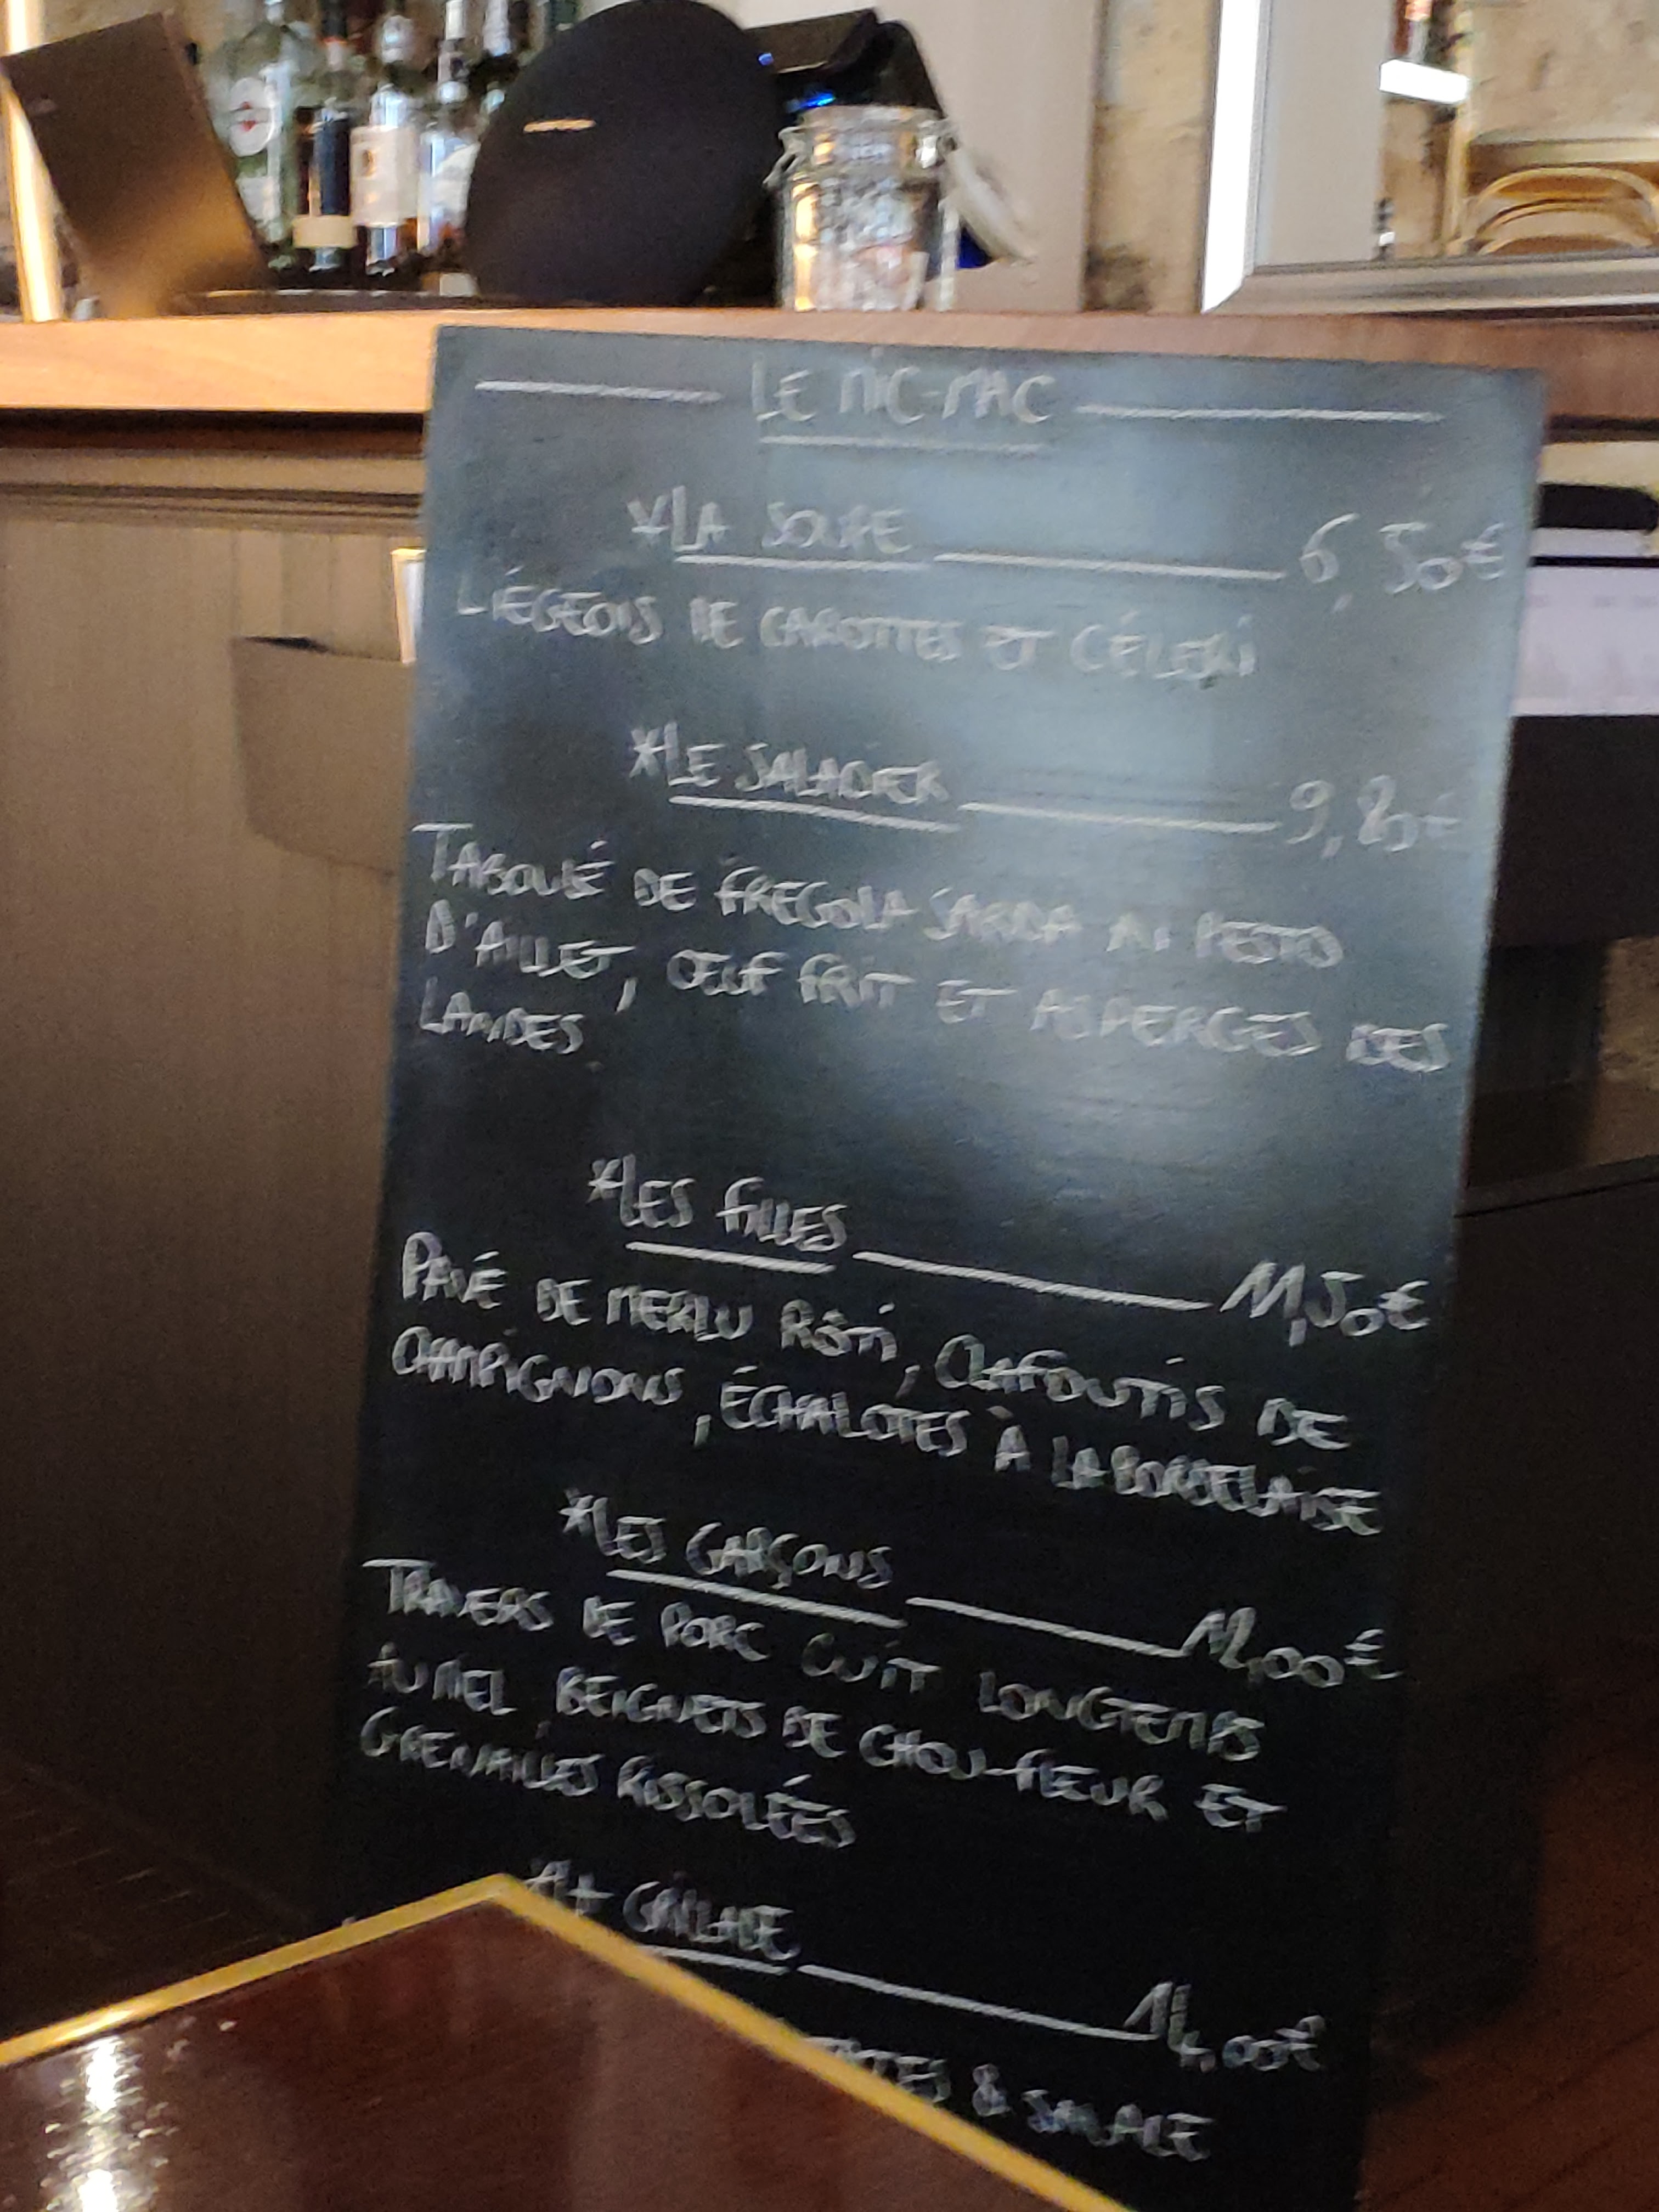 LE MIC-MAC
*LA SOUPE 6,50€
LIÉGEOIS DE CAROTTES ET CÉLERI
*LE SALADIER 9,80€
TABOULÉ DE FREGOLA SARDA AU PESTO
D'AILLET, OEUF FRIT ET ASPERGES DES
LANDES
*LES FILLES 11,50€
PAVÉ DE MERLU RÔTI, CLAFOUTIS DE
CHAMPIGNONS, ÉCHALOTES À LA BORDELAISE
*LES GARÇONS 12,00€
TRAVERS DE PORC CUIT LONGTEMPS
AU MIEL BEIGNETS DE CHOU-FLEUR ET
GRENAILLES RISSOLÉES
14,00€
& SALADE